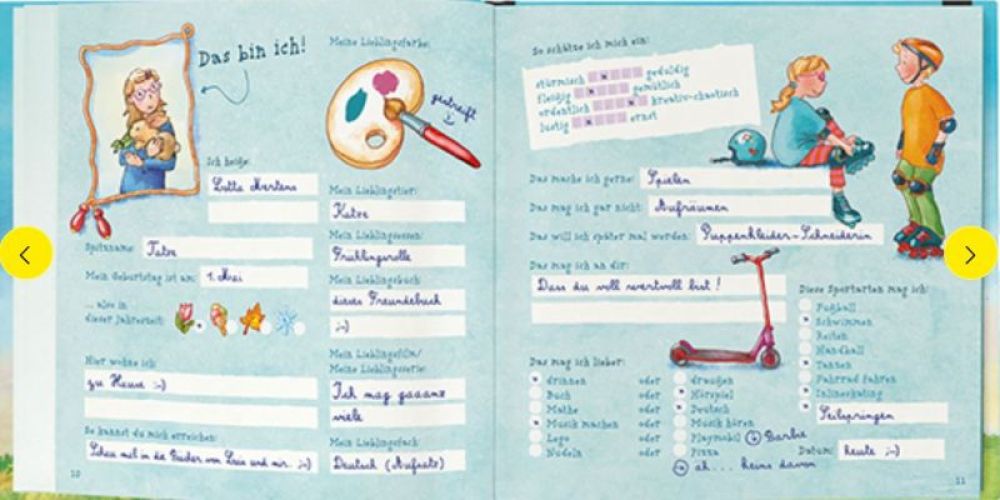 Das bin ich!
Meine Lieblingsfarbe:
gestreift
Ich heiße:
Lotta Mertens
Spitzname: Tatze
Mein Geburtstag ist am: 1. Mai
... also in
dieser Jahreszeit:
Hier wohne ich:
zu Hause :-)
So kannst du mich erreichen:
Schau mal in die Bücher von Leia und mir. ;-)
10
Mein Lieblingstier:
Katze
Mein Lieblingsessen:
Frühlingsrolle
Mein Lieblingsbuch:
dieses Freundebuch
;-)
Mein Lieblingsfilm/
Meine Lieblingsserie:
Ich mag gaaanz
viele
Mein Lieblingsfach:
Deutsch (Aufsatz)
So schätze ich mich ein:
stürmisch geduldig
fleißig gemütlich
ordentlich kreativ-chaotisch
lustig ernst
Das mache ich gerne: Spielen
Das mag ich gar nicht: Aufräumen
Das will ich später mal werden: Puppenkleider-Schneiderin
Das mag ich an dir:
Dass du voll wertvoll bist!
Das mag ich lieber:
drinnen oder draußen
Buch oder Hörspiel
Mathe oder Deutsch
Musik machen oder Musik hören
Lego oder Playmobil Barbie
Nudeln oder Pizza
ah... keins davon
Diese Sportarten mag ich:
Fußball
Schwimmen
Reiten
Handball
Tanzen
Fahrrad fahren
Inlineskating
Seilspringen
Datum: heute ;-)
11